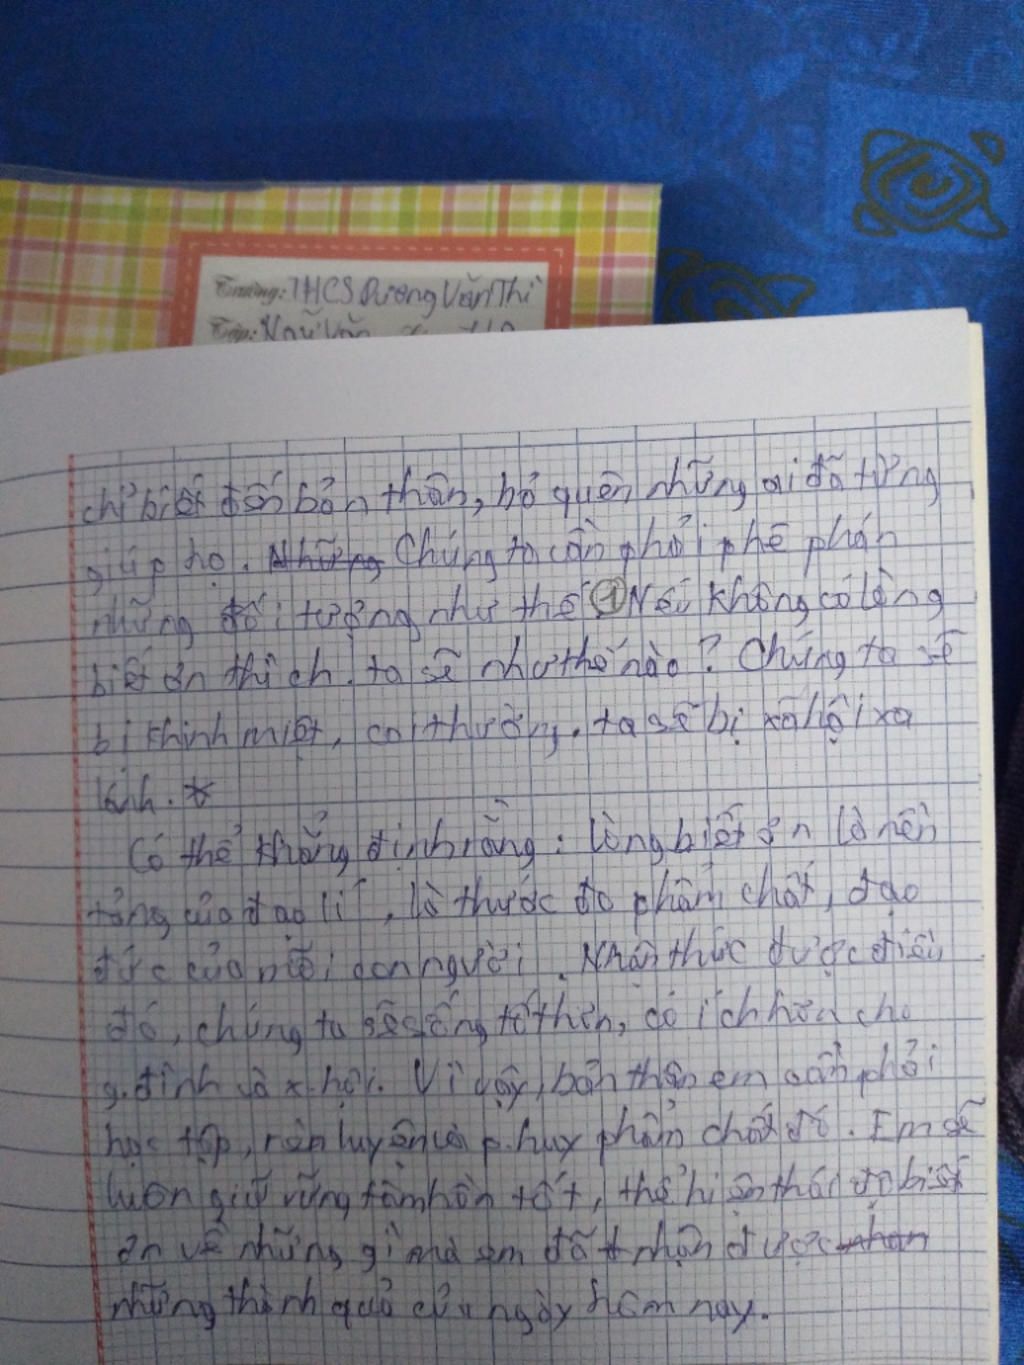 Trường: THCS Dương Văn Thì
Tập: Ngữ Văn
chỉ biết đến bản thân, bỏ quên những ai đã từng
giúp họ. Những Chúng ta cần phải phê phán
những đối tượng như thế ① Nếu không có lòng
biết ơn thì ch. ta sẽ như thế nào? Chúng ta sẽ
bị khinh miệt, coi thường. ta sẽ bị xã hội xa
lánh. *
Có thể khẳng định rằng: lòng biết ơn là nền
tảng của đạo lí, là thước đo phẩm chất, đạo
đức của mỗi con người. Nhận thức được điều
đó, chúng ta sẽ sống tốt hơn, có ích hơn cho
g.đình và x.hội. Vì vậy, bản thân em cần phải
học tập, rèn luyện và p.huy phẩm chất đó. Em sẽ
luôn giữ vững tâm hồn tốt, thể hiện thái độ biết
ơn về những gì mà em đã nhận được nhận
những thành quả của ngày hôm nay.